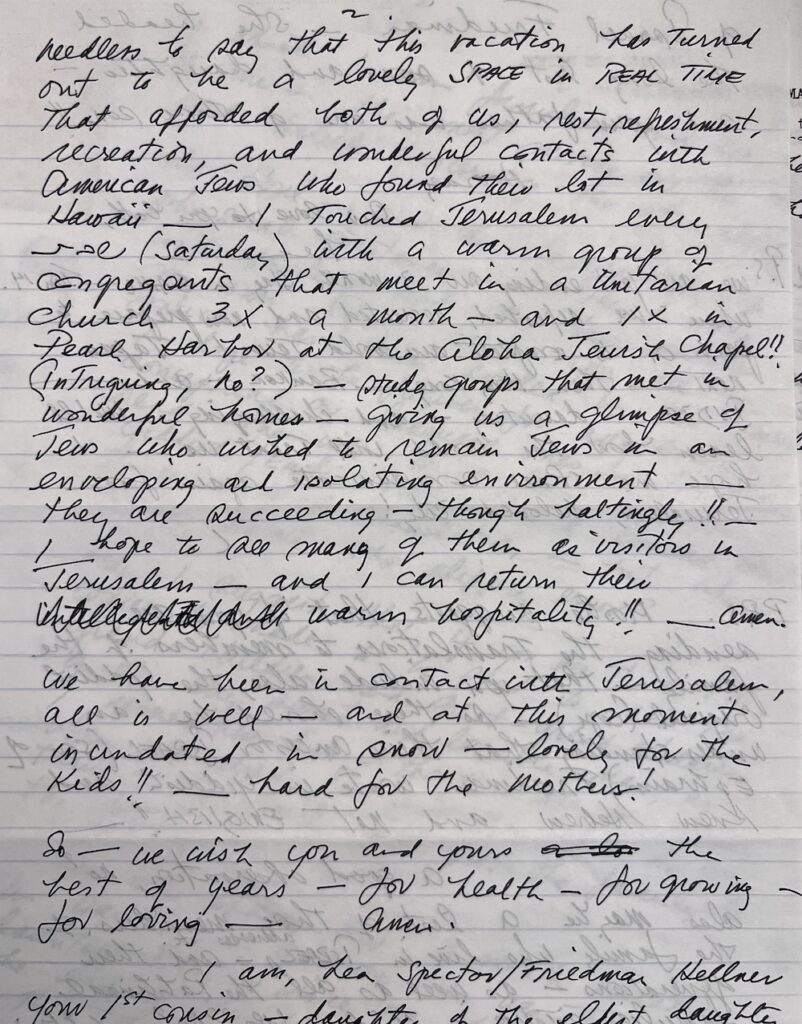 2.
needless to say that this vacation has turned
out to be a lovely SPACE in REAL TIME
that afforded both of us, rest, refreshment,
recreation, and wonderful contacts with
American Jews who found their lot in
Hawaii — I touched Jerusalem every
(Saturday) with a warm group of
congregants that meet in a Unitarian
Church 3X a month — and 1X in
Pearl Harbor at the Aloha Jewish Chapel!!
(Intriguing, no?) — study groups that met in
wonderful homes — giving us a glimpse of
Jews who wished to remain Jews in an
enveloping and isolating environment —
they are succeeding — though haltingly!! —
I hope to see many of them as visitors in
Jerusalem — and I can return their
warm hospitality!! — amen.
we have been in contact with Jerusalem,
all is well — and at this moment
inundated in snow — lovely for the
Kids!! — hard for the Mothers!
So — we wish you and yours the
best of years — for health — for growing —
for loving — amen.
I am, Lea Spector/Friedman Hellner
your 1st cousin — daughter of the eldest daughte